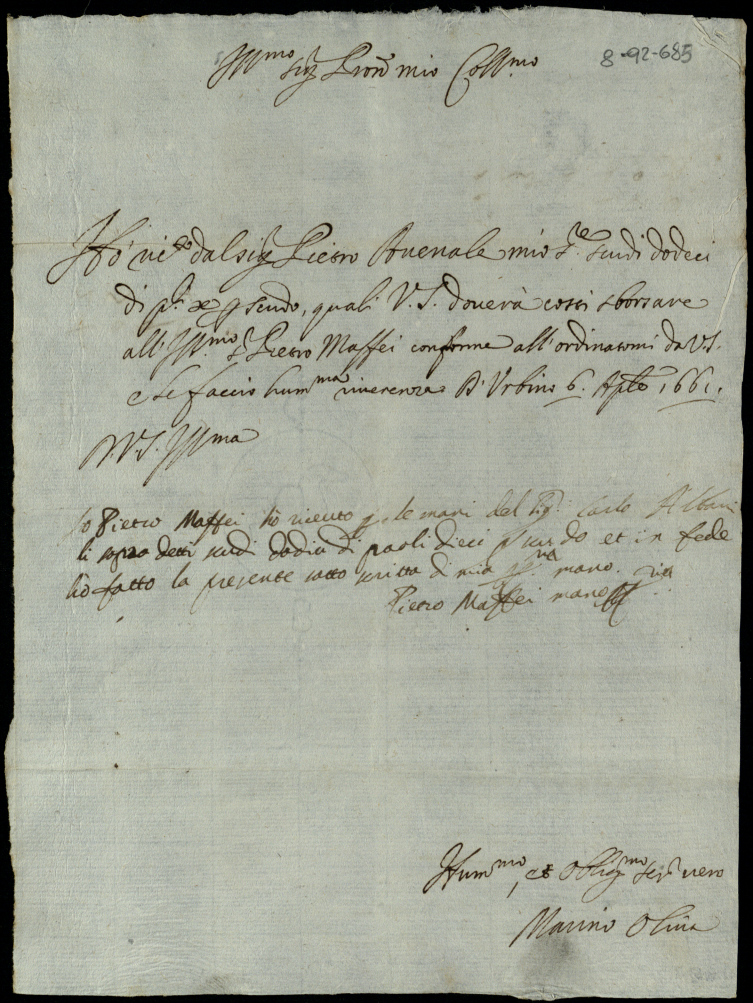 8-92-685
Illmo sigr Pron mio Collmo
Hò rico dal sigr Pietro Buenale mio sre scudi dodeci
di pli x p scudo, quali V.S. douerà costì sborsare
all'Illmo sr Pietro Maffei conforme all'ordinatomi da V.S.
e le faccio hummma riuerenza D'Urbino 6. Aple 1661.
D.V.S. Illma
Io Pietro Maffei hò riceuto p le mani del Sigr Carlo Albani
li sopra detti scudi dodici di paoli dieci p scudo et in fede
hò fatto la presente sotto scritta di mia mano.
Pietro Maffei mano ppria
Hummmo, et obligmo serr uero
Marino Oliua